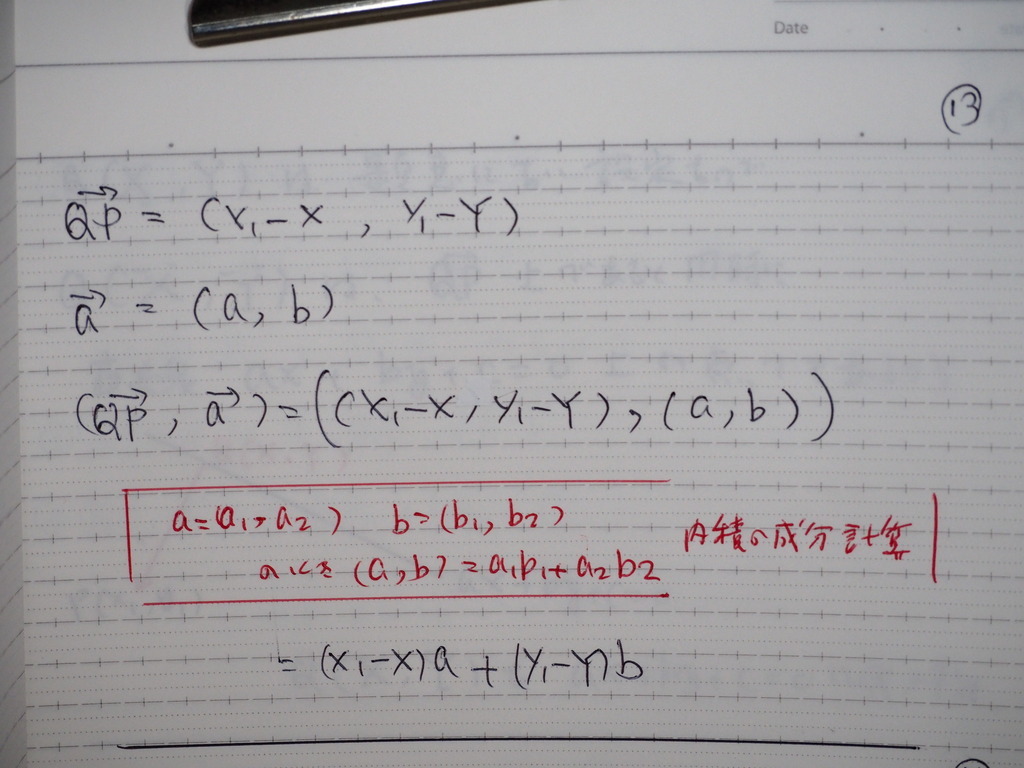 Date
⑬
→QP = (x₁-X , y₁-Y)
→a = (a, b)
(→QP , →a) = ((x₁-X , y₁-Y), (a, b))
a=(a₁, a₂) b=(b₁, b₂)
のとき (a,b) = a₁b₁+a₂b₂ 内積の成分計算
= (x₁-X)a + (y₁-Y)b